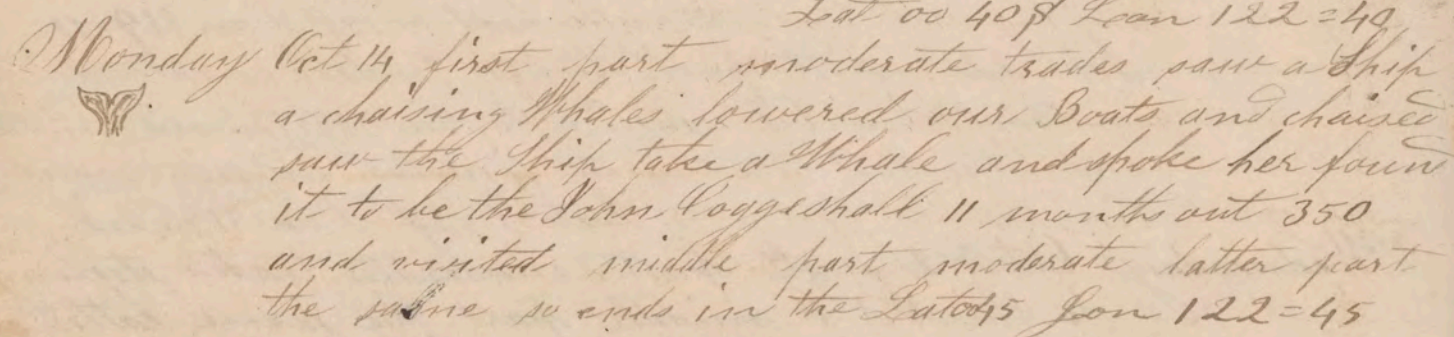 Lat 00 40 S Lon 122=40
Monday Oct 14 first part moderate trades saw a Ship
a chaising Whales lowered our Boats and chaised
saw the Ship take a Whale and spoke her found
it to be the John Coggeshall 11 months out 350
and visited middle part moderate latter part
the same so ends in the Lat 00 45 Lon 122=45